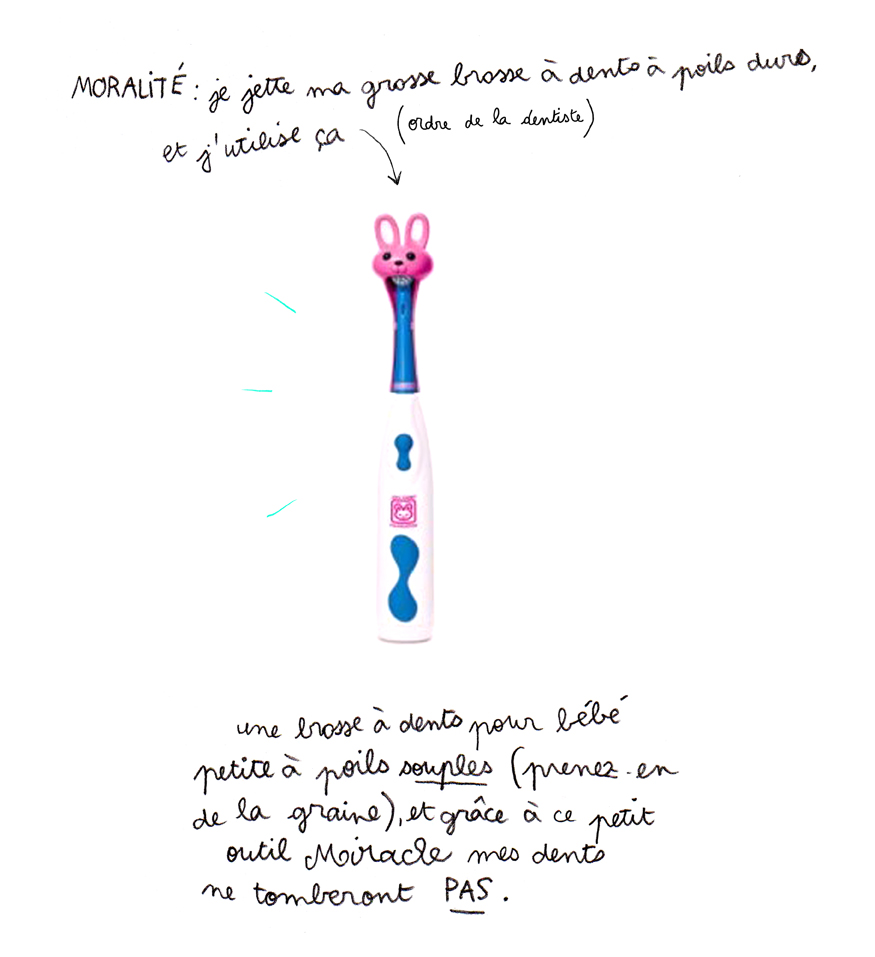 MORALITÉ : je jette ma grosse brosse à dents à poils durs,
et j'utilise ça (ordre de la dentiste)
une brosse à dents pour bébé
petite à poils souples (prenez-en
de la graine), et grâce à ce petit
outil Miracle mes dents
ne tomberont PAS.